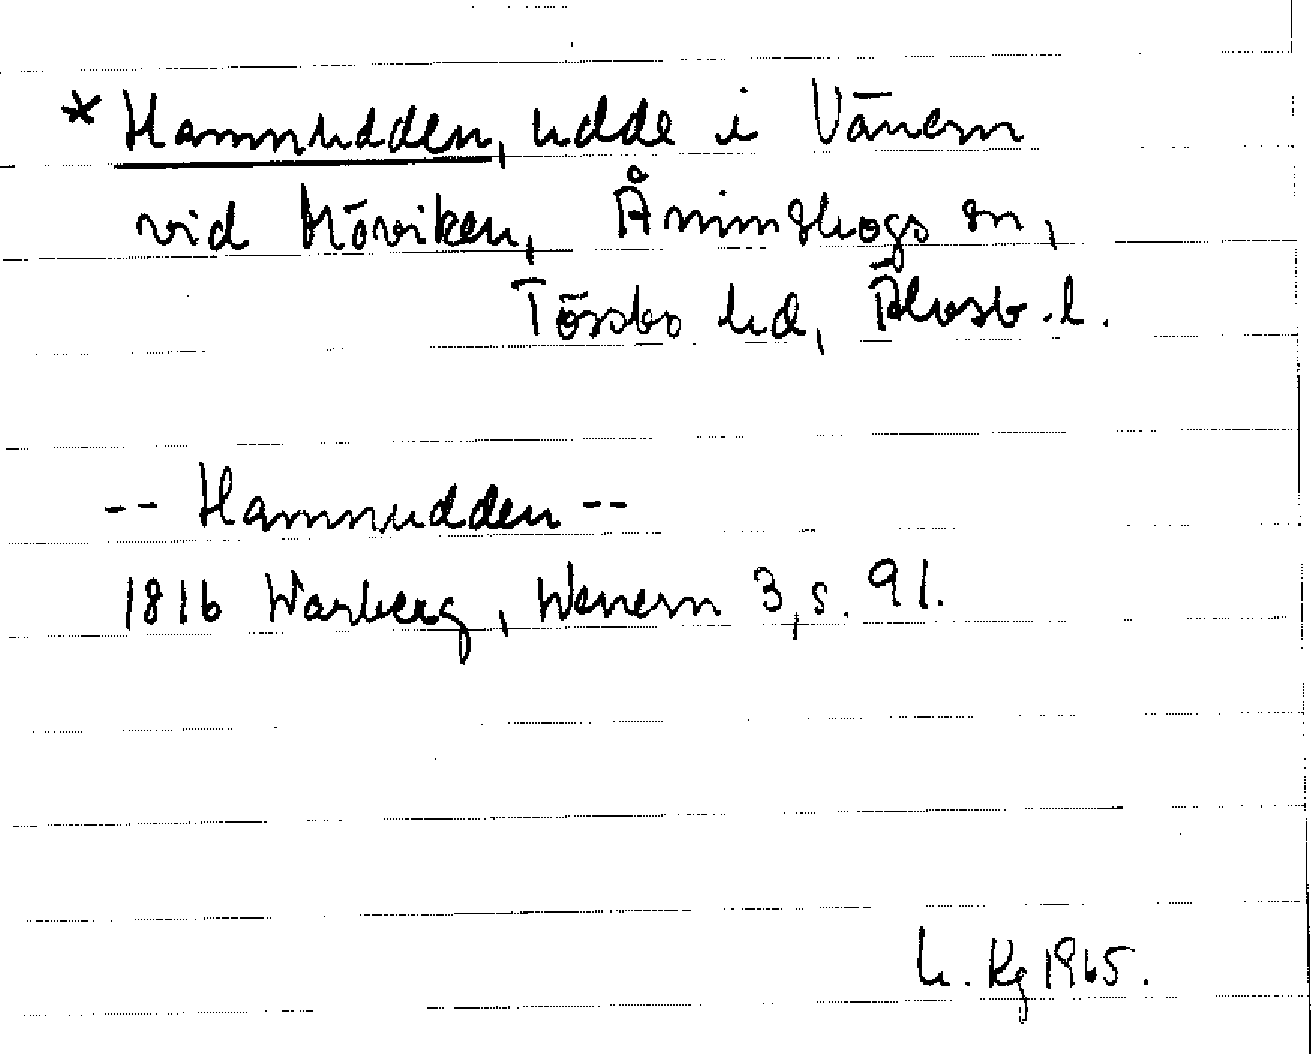 * Hamnudden, udde i Vänern
vid Höviken, Ånimskogs sn,
Tössbo hd, Älvsb. l.
-- Hamnudden --
1816 Warberg, Wenern 3, s. 91.
Kg 1965.